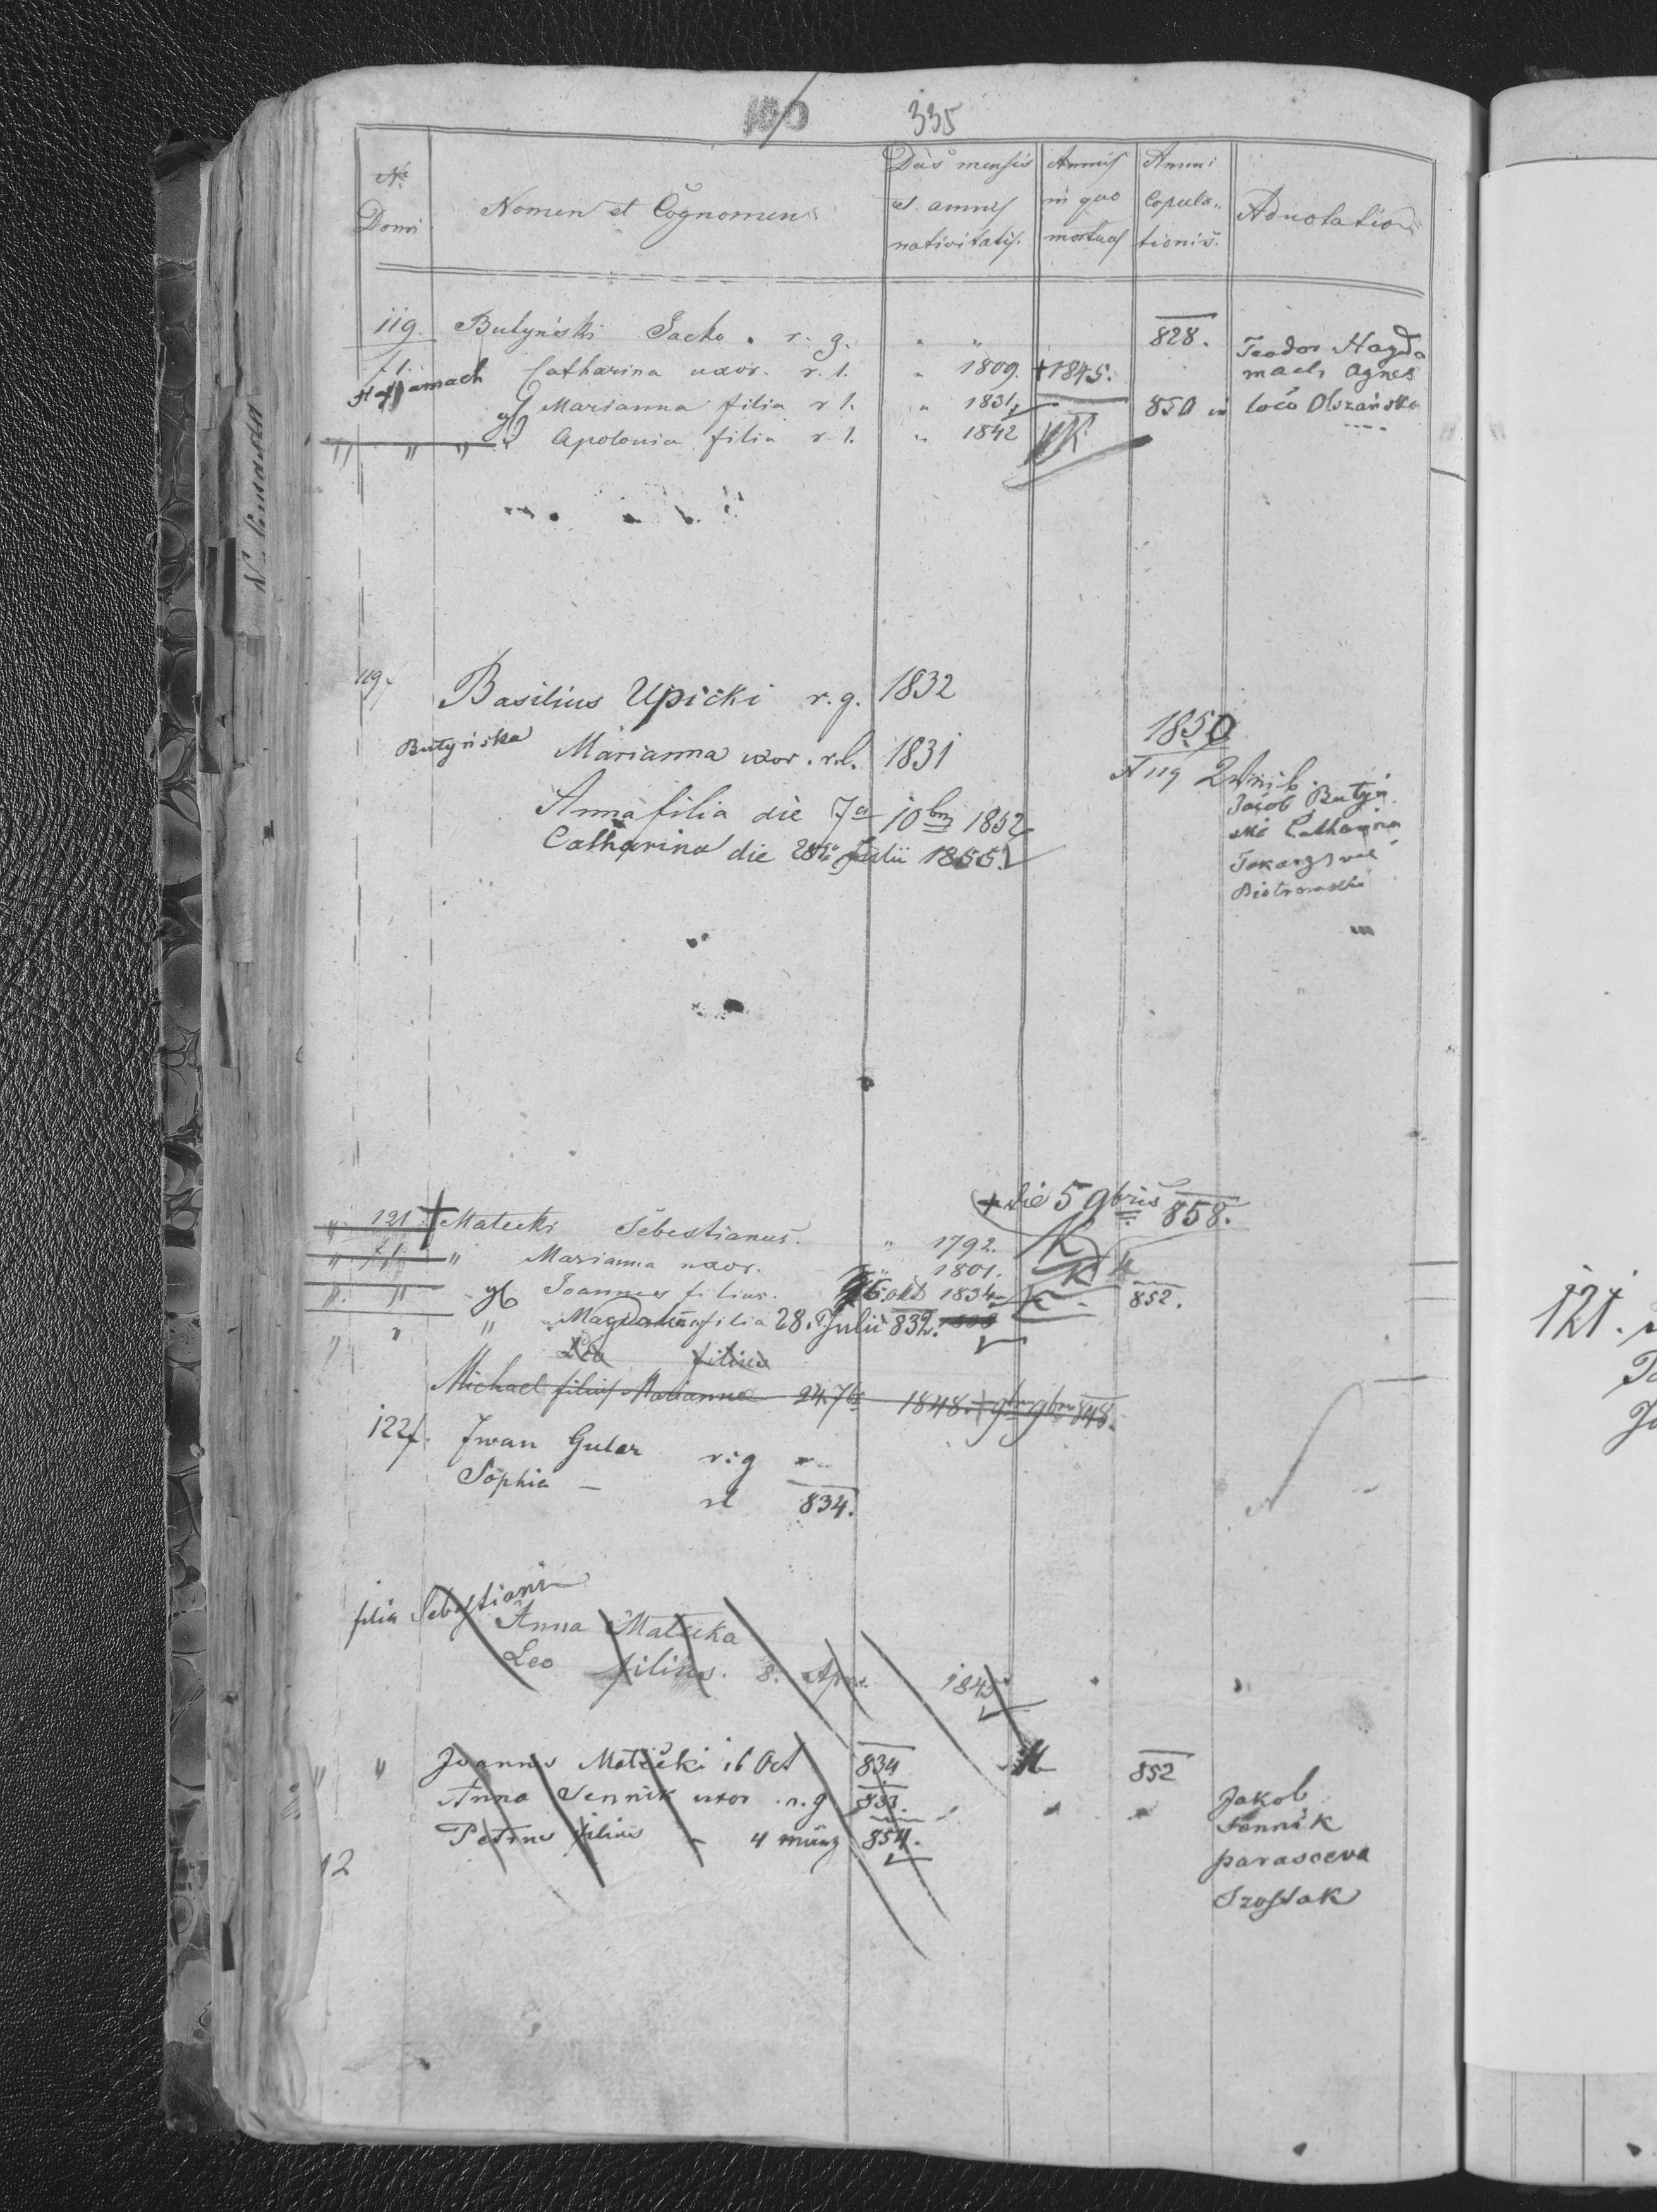 335
No Domi Nomen et Cognomen Dies mensis et annus nativitatis. Annus in quo mortuus Anni Copulationis. Adnotatio
119. Butyński Jacko. r. g. " " 828. Teodor Hayda
Catharina uxor. r. l. " 1809. +1845. mach Agnes
Marianna filia r. l. " 1831 850 in loco Olszańska
" " " Apolonia filia r. l. " 1842
119. Basilius Upicki r. g. 1832
Butyńska Marianna uxor. r. l. 1831 1850
N 119
Anna filia die 7a 10br 1852
Catharina die 28 Julii 1855.
Jacob Butyń
ski Catharina
Tokarz vel
Piotrowska
+ die 5 9bris 858.
" 121 + Malecki Sebestianus. " 1792.
" " Marianna uxor. " 1801.
" " Joannes filius. 16 okt 1834 852.
" " " Magdalena filia 28. Julii 832.
Leo filius
Michael filius Marianna 24 7br 1848. + 9br 848.
122. Iwan Guler r. g
Sophia — rl 834.
filia Sebestiani
Anna Malecka
Leo filius. 8. Apr. 1845
" " Joannes Malecki 16 Oct 834 852
Anna Sennik uxor. r. g 833. Jakob
Sennik
Petrus filius - 4 März 854.
parasceva
Szostak
12
121.